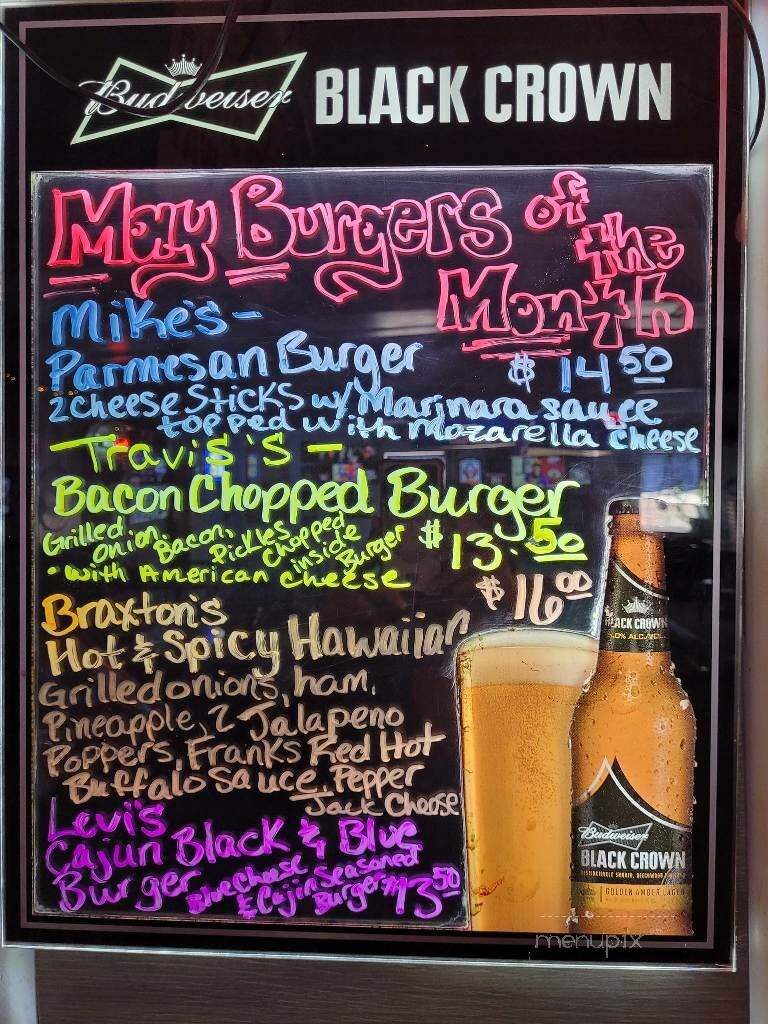 Budweiser BLACK CROWN
May Burgers of
the
Month
Mike's -
Parmesan Burger $14 50
2 cheese Sticks w/ Marinara sauce
topped with Mozarella cheese
Travis's -
Bacon Chopped Burger
Grilled onion, Bacon, Pickles Chopped inside Burger $13.50
• with American cheese
$16 00
Braxton's
Hot & Spicy Hawaiian
Grilled onions, ham,
Pineapple, 2 Jalapeno
Poppers, Franks Red Hot
Buffalo Sauce, Pepper
Jack Cheese
Levi's
Cajun Black & Blue
Burger Blue Cheese
& Cajun Seasoned
Burger $13 50
BLACK CROWN
Budweiser
BLACK CROWN
GOLDEN AMBER LAGER
menupix